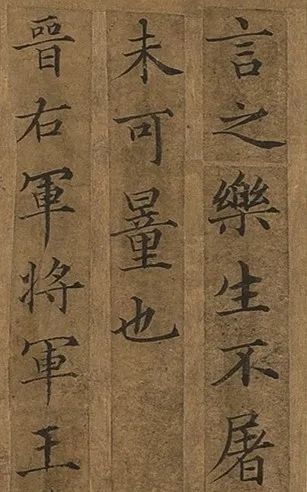 言之樂生不屠
未可量也
晉右軍將軍王